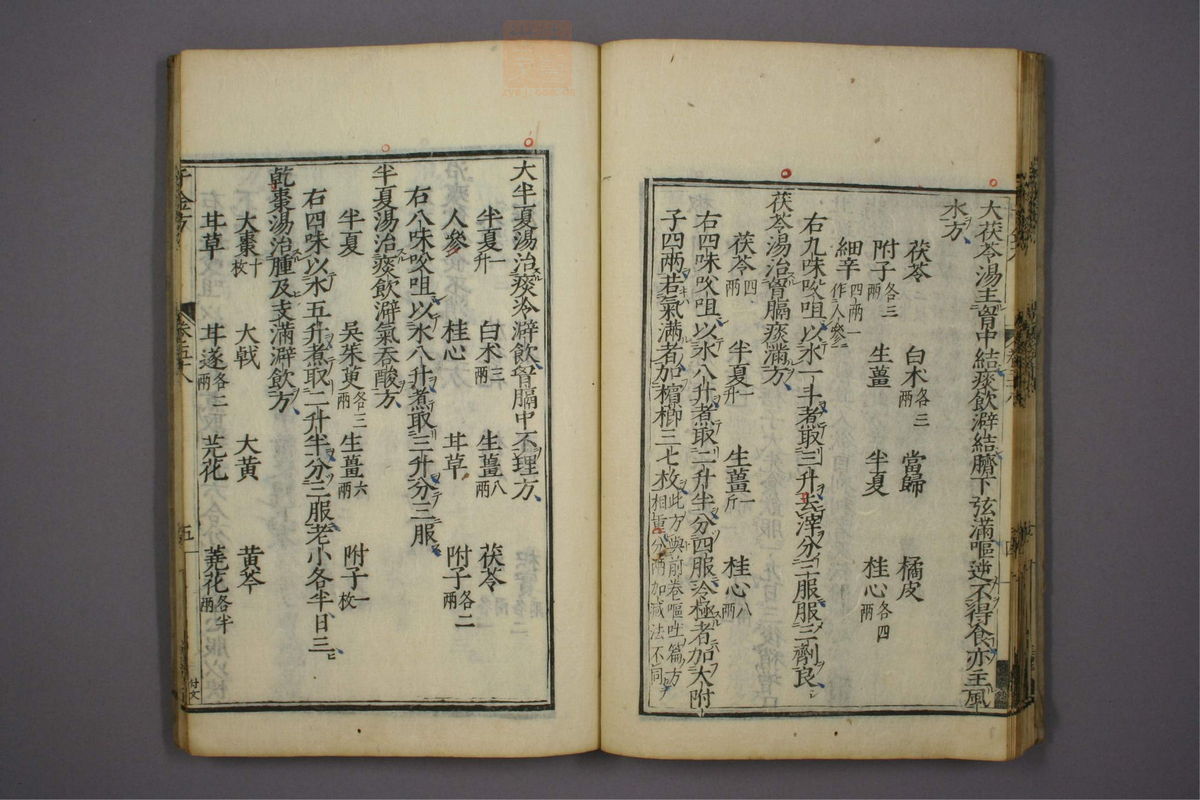 大茯苓湯主胷中結痰飲澼結臍下弦滿嘔逆不得食亦主風
水方
茯苓 白术各三兩 當歸 橘皮
附子各三兩 生薑 半夏 桂心各四兩
細辛四兩一作人參
右九味㕮咀以水一斗煮取三升去滓分三服服三劑良
茯苓湯治胷膈痰滿方
茯苓四兩 半夏一升 生薑一斤 桂心八兩
右四味㕮咀以水八升煮取二升半分四服冷極者加大附
子四兩若氣滿者加檳榔三七枚此方與前卷嘔吐篇方相重分兩加減法不同
大半夏湯治痰冷澼飲胷膈中不理方
半夏一升 白术三兩 生薑八兩 茯苓
人參 桂心 甘草 附子各二兩
右八味㕮咀以水八升煮取三升分三服
半夏湯治痰飲澼氣吞酸方
半夏 吳茱萸各三兩 生薑六兩 附子一枚
右四味以水五升煮取二升半分三服老小各半日三
乾棗湯治腫及支滿澼飲方
大棗十枚 大戟 大黃 黃芩
甘草 甘遂各二兩 芫花 蕘花各半兩
千金方
卷五十八
五
付文